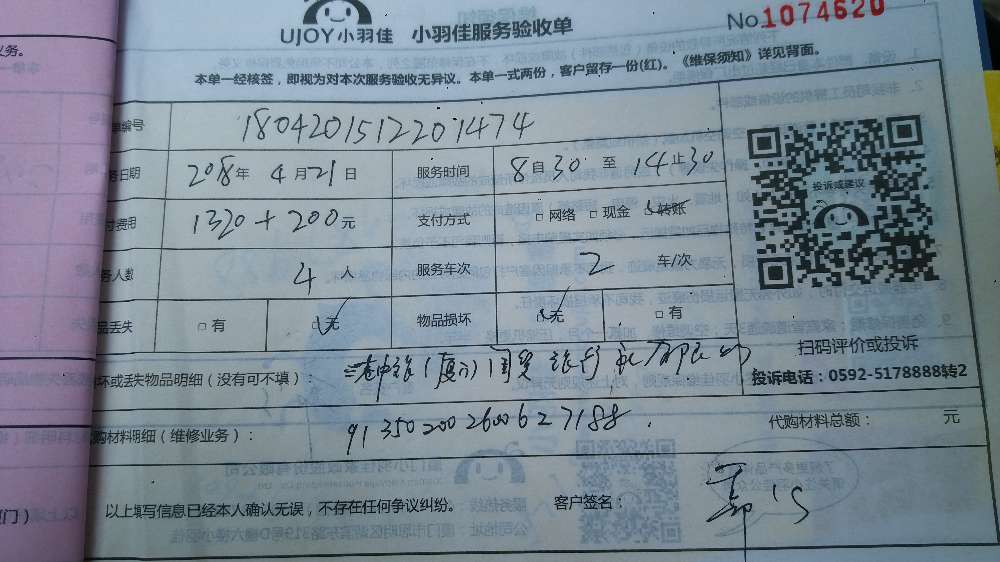 UJOY小羽佳 小羽佳服务验收单 No1074620
本单一经核签，即视为对本次服务验收无异议。本单一式两份，客户留存一份(红)。《维保须知》详见背面。
义务。
单编号 1804201512201474
务日期 2018年 4月21日 服务时间 8自30至14止30
付费用 1320+200元 支付方式 □网络 □现金 ☑转账
务人数 4人 服务车次 2 车/次
品丢失 □有 ☑无 物品损坏 □有
坏或丢失物品明细（没有可不填）：
购材料明细（维修业务）： 913502002600627188. 代购材料总额： 元
以上填写信息已经本人确认无误，不存在任何争议纠纷。 客户签名：
门）
投诉或建议
扫码评价或投诉
投诉电话：0592-5178888转2